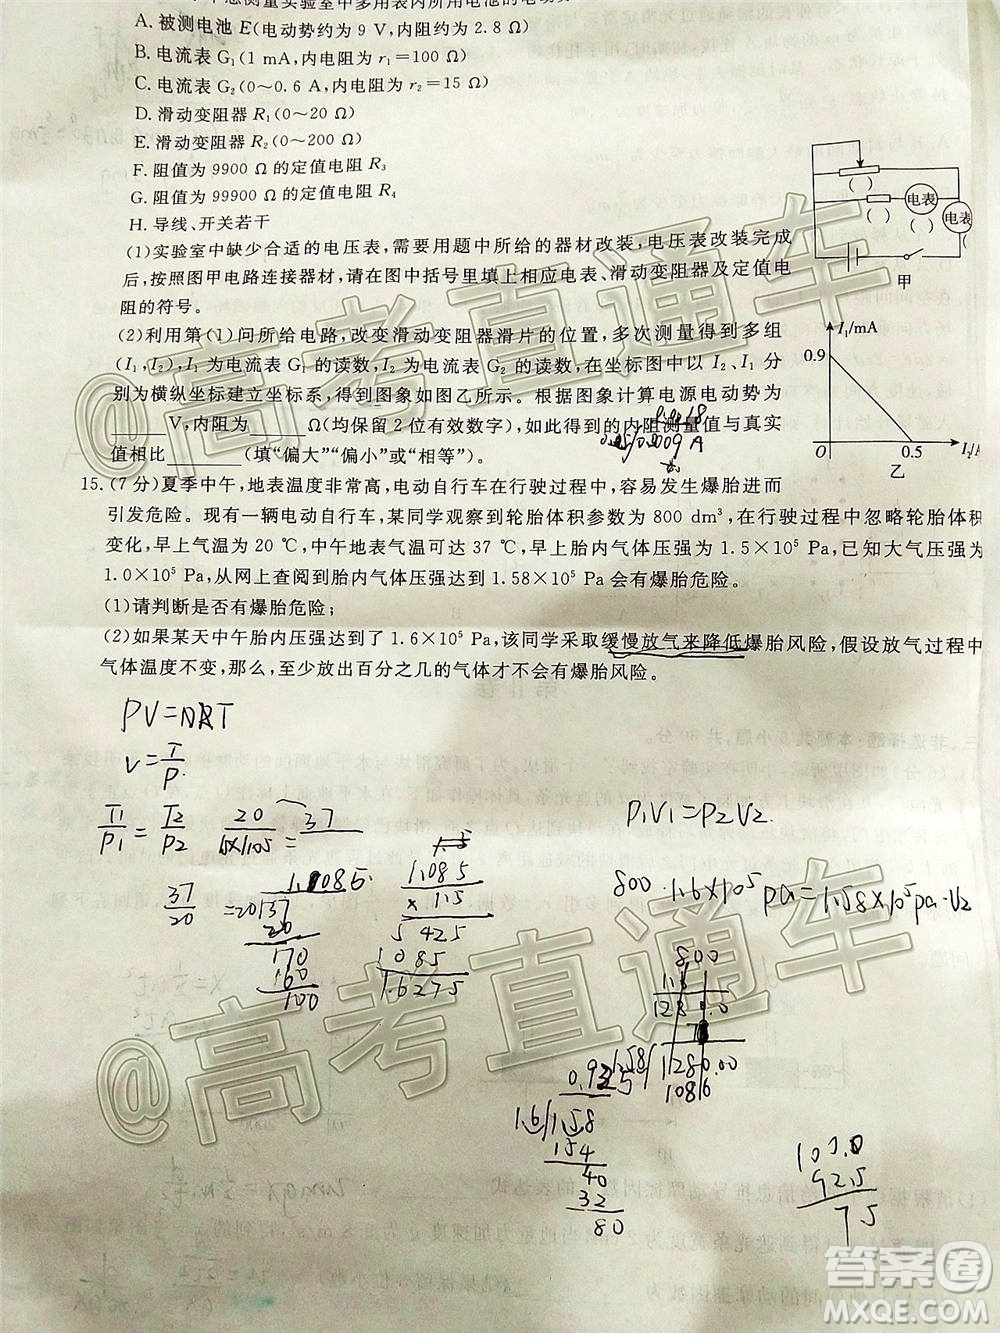 A. 被测电池 E(电动势约为 9 V,内阻约为 2.8 Ω)
B. 电流表 G₁(1 mA,内电阻为 r₁=100 Ω)
C. 电流表 G₂(0~0.6 A,内电阻为 r₂=15 Ω)
D. 滑动变阻器 R₁(0~20 Ω)
E. 滑动变阻器 R₂(0~200 Ω)
F. 阻值为 9900 Ω 的定值电阻 R₃
G. 阻值为 99900 Ω 的定值电阻 R₄
H. 导线、开关若干
( )
( )
电表
电表
甲
(1)实验室中缺少合适的电压表,需要用题中所给的器材改装,电压表改装完成
后,按照图甲电路连接器材,请在图中括号里填上相应电表、滑动变阻器及定值电
阻的符号。
(2)利用第(1)问所给电路,改变滑动变阻器滑片的位置,多次测量得到多组
(I₁,I₂),I₁ 为电流表 G₁ 的读数,I₂ 为电流表 G₂ 的读数,在坐标图中以 I₂、I₁ 分
别为横纵坐标建立坐标系,得到图象如图乙所示。根据图象计算电源电动势为
____V,内阻为____Ω(均保留 2 位有效数字),如此得到的内阻测量值与真实
值相比______(填“偏大”“偏小”或“相等”)。
I₁/mA
0.9
O
0.5
I₂/A
乙
15.(7 分)夏季中午,地表温度非常高,电动自行车在行驶过程中,容易发生爆胎进而
引发危险。现有一辆电动自行车,某同学观察到轮胎体积参数为 800 dm³,在行驶过程中忽略轮胎体积
变化,早上气温为 20 ℃,中午地表气温可达 37 ℃,早上胎内气体压强为 1.5×10⁵ Pa,已知大气压强为
1.0×10⁵ Pa,从网上查阅到胎内气体压强达到 1.58×10⁵ Pa 会有爆胎危险。
(1)请判断是否有爆胎危险;
(2)如果某天中午胎内压强达到了 1.6×10⁵ Pa,该同学采取缓慢放气来降低爆胎风险,假设放气过程中
气体温度不变,那么,至少放出百分之几的气体才不会有爆胎风险。
PV=nRT
V=T/P
T₁/P₁ = T₂/P₂
37/20
1.085
× 1.5
5 425
1 085
1.6275
P₁V₁=P₂V₂.
800 · 1.6×10⁵ pa = 1.58×10⁵ pa·V₂
1.6/1.58
40
32
80
100.0
92.5
7.5
@高考直通车
@高考直通车
答案圈
MXQE.COM